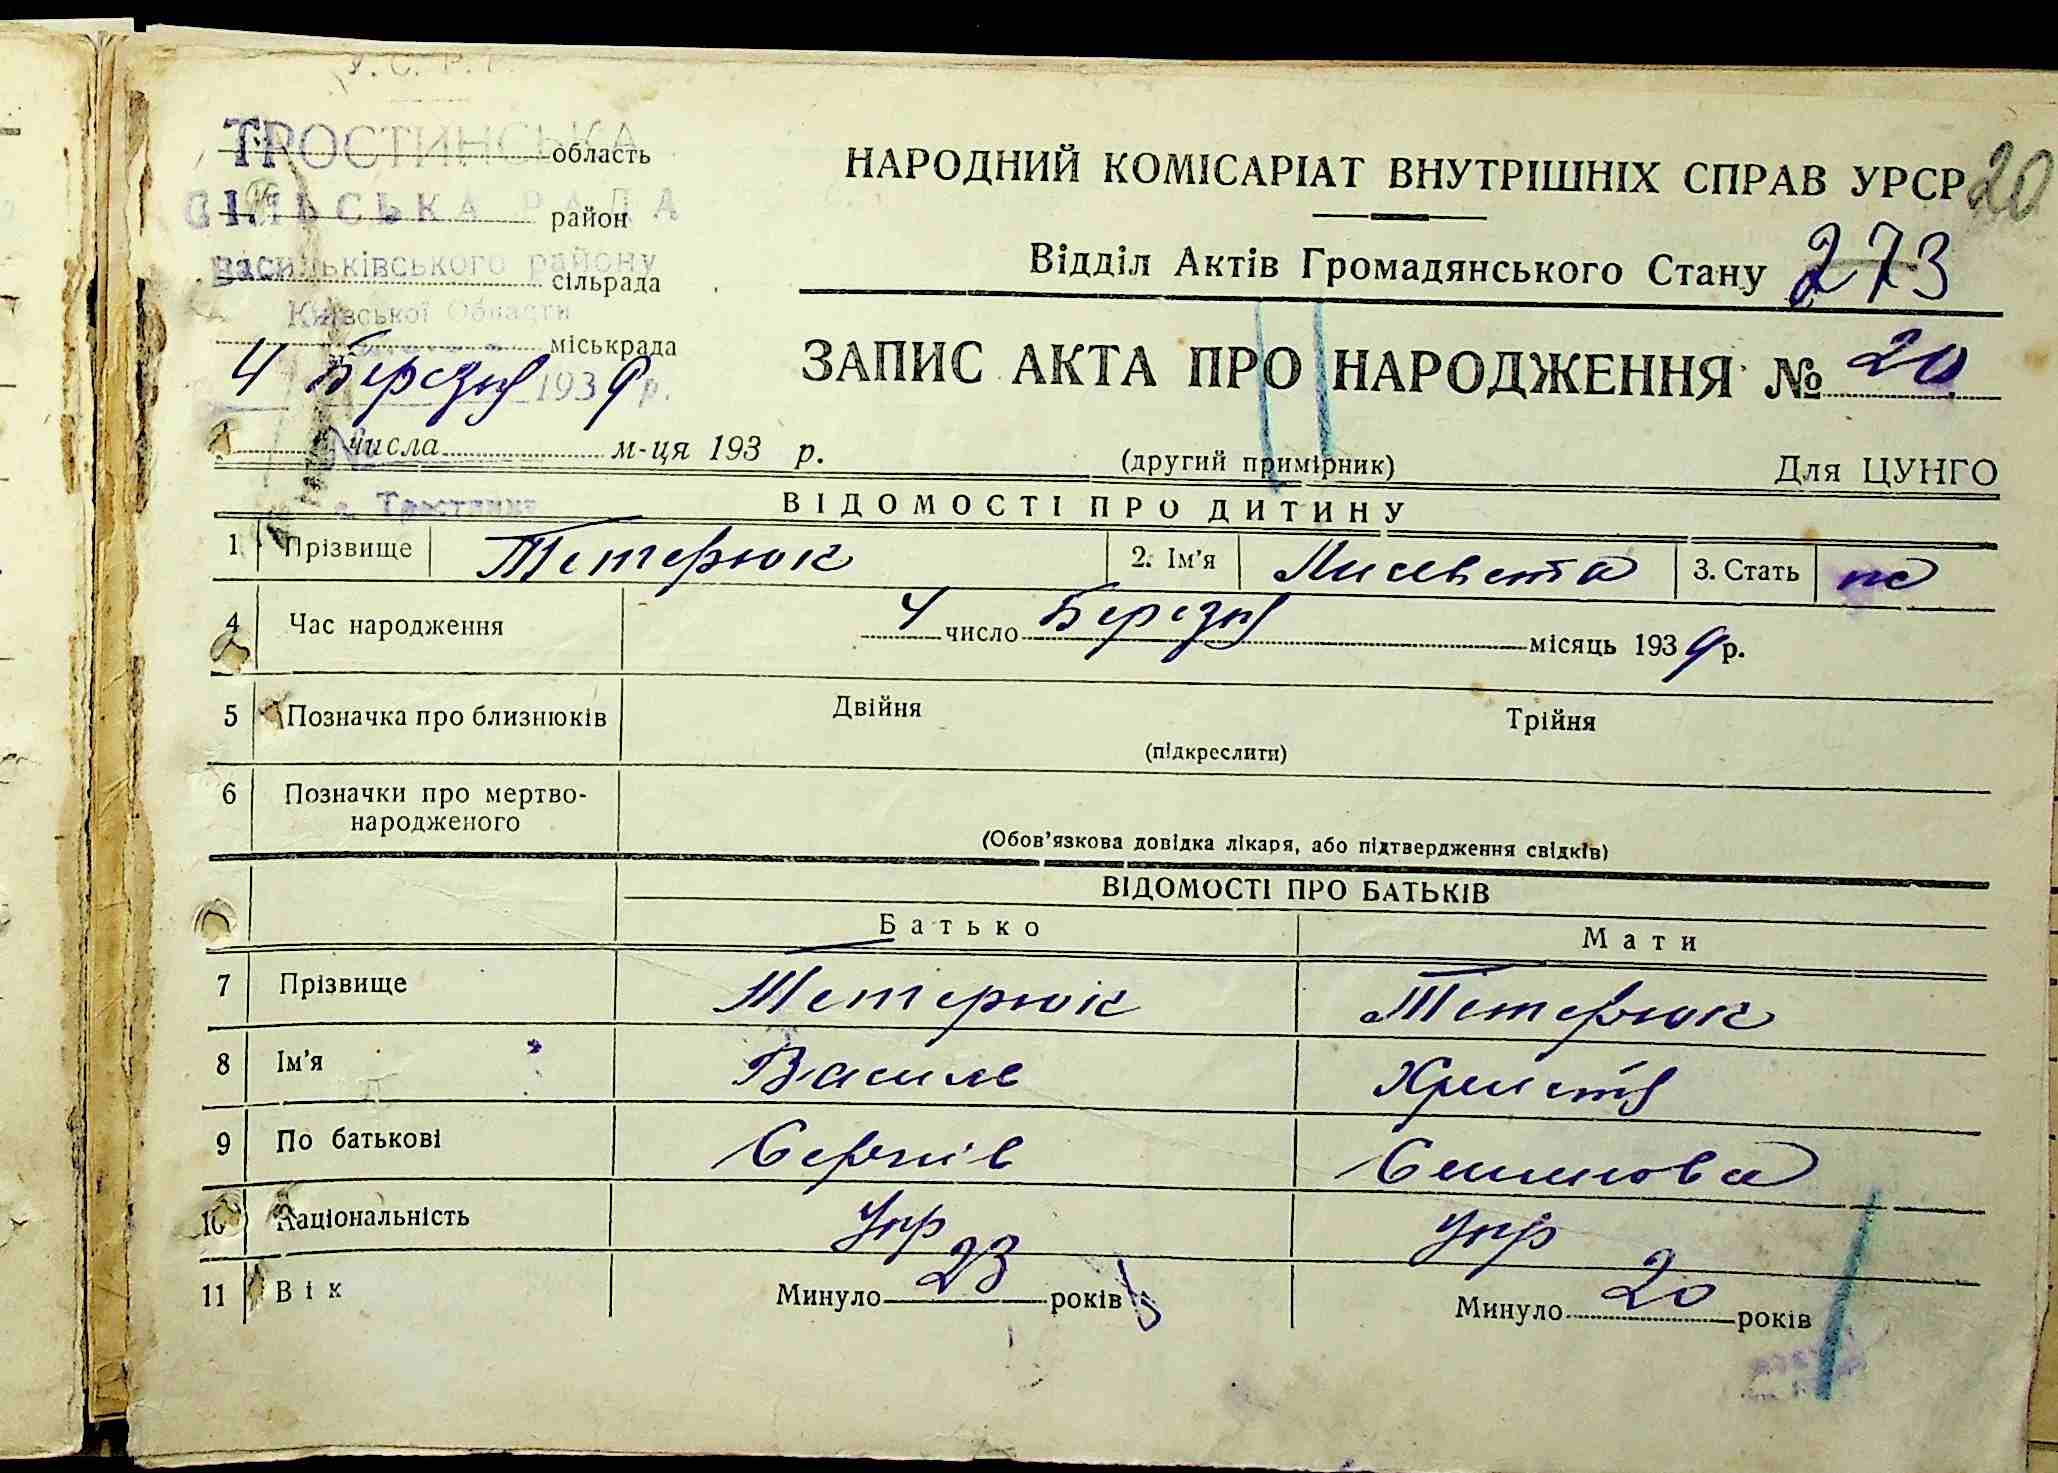 У. С. Р. Р.
20
ТРОСТИНСЬКА область
СІЛЬСЬКА РАДА район
Васильківського району сільрада
Київської Области
міськрада
4 Березня 1939 р.
числа м-ця 193 р.
с. Тростинка
НАРОДНИЙ КОМІСАРІАТ ВНУТРІШНІХ СПРАВ УРСР
Відділ Актів Громадянського Стану 273
ЗАПИС АКТА ПРО НАРОДЖЕННЯ № 20
(другий примірник) Для ЦУНГО
ВІДОМОСТІ ПРО ДИТИНУ
1 Прізвище Тетерюк 2. Ім'я Лисевета 3. Стать
4 Час народження 4 число Березня місяць 1939 р.
5 Позначка про близнюків Двійня Трійня
(підкреслити)
6 Позначки про мертво-
народженого
(Обов'язкова довідка лікаря, або підтвердження свідків)
ВІДОМОСТІ ПРО БАТЬКІВ
Батько Мати
7 Прізвище Тетерюк Тетерюк
8 Ім'я Василь Христя
9 По батькові Сергіів Семенова
10 Національність Укр Укр
11 Вік Минуло 23 років Минуло 20 років